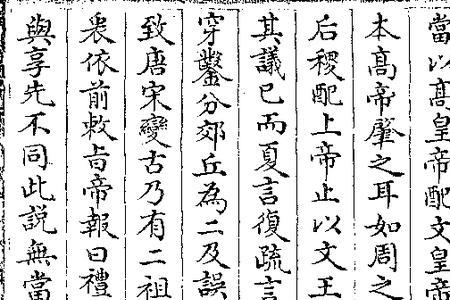 當以高皇帝配文皇帝
本高帝肇之耳如周之
后稷配上帝止以文王
其議已而夏言復疏言
穿鑿分郊丘為二及誤
致唐宋變古乃有二祖
衆依前敕旨帝報曰禮
與享先不同此說無當